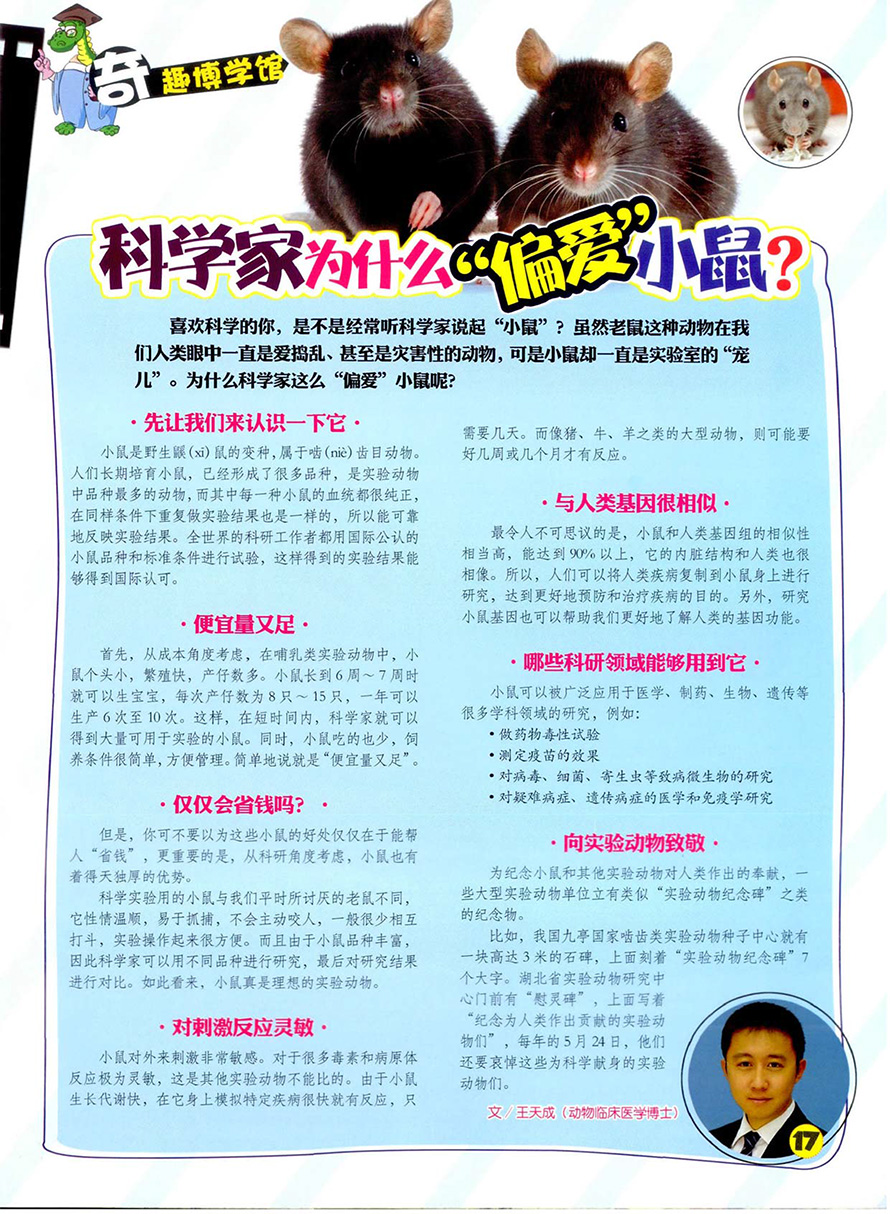 奇趣博学馆
科学家为什么“偏爱”小鼠？
喜欢科学的你，是不是经常听科学家说起“小鼠”？虽然老鼠这种动物在我
们人类眼中一直是爱捣乱、甚至是灾害性的动物，可是小鼠却一直是实验室的“宠
儿”。为什么科学家这么“偏爱”小鼠呢?
·先让我们来认识一下它·
小鼠是野生鼷(xī)鼠的变种,属于啮(niè)齿目动物。
人们长期培育小鼠，已经形成了很多品种，是实验动物
中品种最多的动物,而其中每一种小鼠的血统都很纯正，
在同样条件下重复做实验结果也是一样的，所以能可靠
地反映实验结果。全世界的科研工作者都用国际公认的
小鼠品种和标准条件进行试验，这样得到的实验结果能
够得到国际认可。
·便宜量又足·
首先，从成本角度考虑，在哺乳类实验动物中，小
鼠个头小，繁殖快，产仔数多。小鼠长到6周～7周时
就可以生宝宝，每次产仔数为8只～15只，一年可以
生产6次至10次。这样，在短时间内，科学家就可以
得到大量可用于实验的小鼠。同时，小鼠吃的也少，饲
养条件很简单,方便管理。简单地说就是“便宜量又足”。
·仅仅会省钱吗？·
但是，你可不要以为这些小鼠的好处仅仅在于能帮
人“省钱”，更重要的是，从科研角度考虑，小鼠也有
着得天独厚的优势。
科学实验用的小鼠与我们平时所讨厌的老鼠不同，
它性情温顺，易于抓捕，不会主动咬人，一般很少相互
打斗，实验操作起来很方便。而且由于小鼠品种丰富，
因此科学家可以用不同品种进行研究，最后对研究结果
进行对比。如此看来，小鼠真是理想的实验动物。
·对刺激反应灵敏·
小鼠对外来刺激非常敏感。对于很多毒素和病原体
反应极为灵敏，这是其他实验动物不能比的。由于小鼠
生长代谢快，在它身上模拟特定疾病很快就有反应，只
需要几天。而像猪、牛、羊之类的大型动物，则可能要
好几周或几个月才有反应。
·与人类基因很相似·
最令人不可思议的是，小鼠和人类基因组的相似性
相当高，能达到90%以上，它的内脏结构和人类也很
相像。所以，人们可以将人类疾病复制到小鼠身上进行
研究，达到更好地预防和治疗疾病的目的。另外，研究
小鼠基因也可以帮助我们更好地了解人类的基因功能。
·哪些科研领域能够用到它·
小鼠可以被广泛应用于医学、制药、生物、遗传等
很多学科领域的研究，例如：
·做药物毒性试验
·测定疫苗的效果
·对病毒、细菌、寄生虫等致病微生物的研究
·对疑难病症、遗传病症的医学和免疫学研究
·向实验动物致敬·
为纪念小鼠和其他实验动物对人类作出的奉献，一
些大型实验动物单位立有类似“实验动物纪念碑”之类
的纪念物。
比如，我国九亭国家啮齿类实验动物种子中心就有
一块高达3米的石碑，上面刻着“实验动物纪念碑”7
个大字。湖北省实验动物研究中
心门前有“慰灵碑”，上面写着
“纪念为人类作出贡献的实验动
物们”，每年的5月24日，他们
还要哀悼这些为科学献身的实验
动物们。
文／王天成（动物临床医学博士）
17